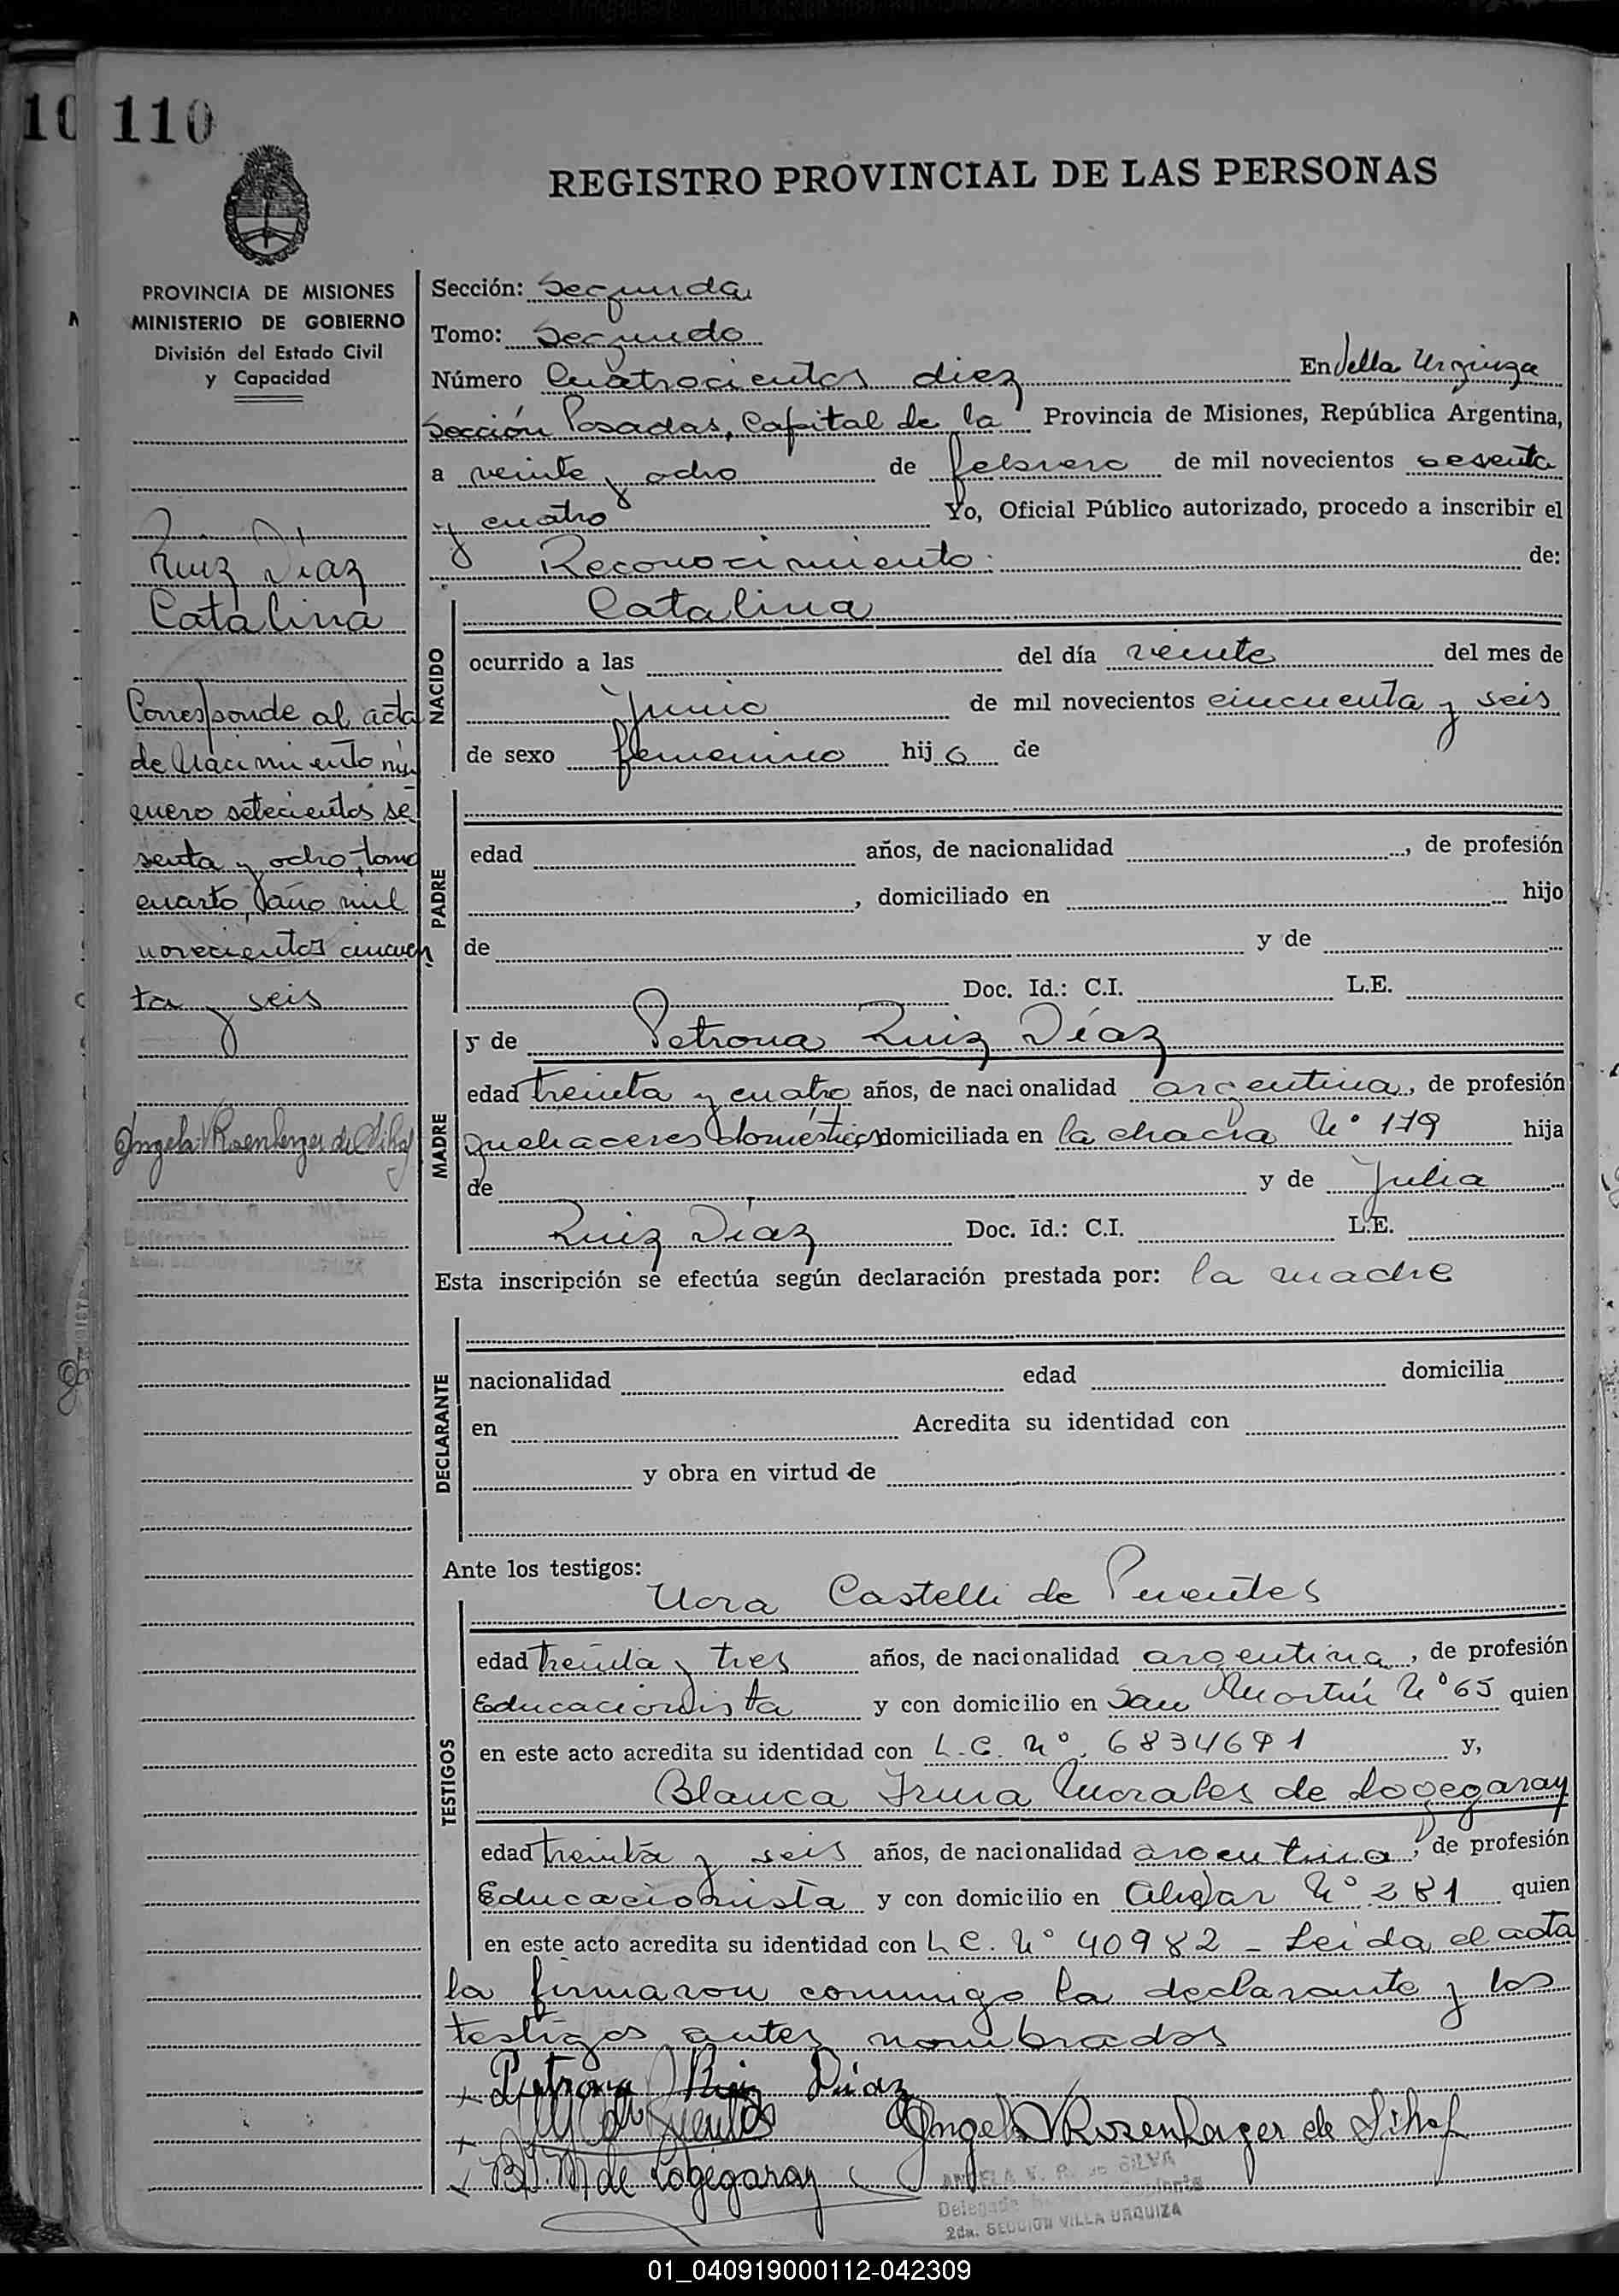 110
REGISTRO PROVINCIAL DE LAS PERSONAS
PROVINCIA DE MISIONES
MINISTERIO DE GOBIERNO
División del Estado Civil
y Capacidad
Ruiz Díaz
Catalina
Corresponde al acta
de Nacimiento nú
mero setecientos se
senta y ocho, tomo
cuarto, año mil
novecientos cincuen
ta y seis
Sección: Segunda
Tomo: Segundo
Número Cuatrocientos diez En Villa Urquiza
Sección Posadas, Capital de la Provincia de Misiones, República Argentina,
a veinte y ocho de febrero de mil novecientos sesenta
y cuatro Yo, Oficial Público autorizado, procedo a inscribir el
Reconocimiento de:
NACIDO
Catalina
ocurrido a las del día veinte del mes de
junio de mil novecientos cincuenta y seis
de sexo femenino hij a de
PADRE
edad años, de nacionalidad , de profesión
, domiciliado en hijo
de y de
Doc. Id.: C.I. L.E.
MADRE
y de Petrona Ruiz Díaz
edad treinta y cuatro años, de nacionalidad argentina, de profesión
quehaceres domésticos domiciliada en la chacra Nº 179 hija
de y de Julia
Ruiz Díaz Doc. Id.: C.I. L.E.
Esta inscripción se efectúa según declaración prestada por: la madre
DECLARANTE
nacionalidad edad domicilia
en Acredita su identidad con
y obra en virtud de
Ante los testigos:
TESTIGOS
Nora Castelli de Puentes
edad treinta y tres años, de nacionalidad argentina, de profesión
Educacionista y con domicilio en San Martín Nº 65 quien
en este acto acredita su identidad con L.C. Nº. y,
Blanca Irma Morales de Logegaray
edad treinta y seis años, de nacionalidad argentina, de profesión
Educacionista y con domicilio en Nº 281 quien
en este acto acredita su identidad con L C. Nº 40982 - Leida el acta
la firmaron conmigo la declarante y los
testigos antes nombrados
Petrona Ruiz Díaz
de Puentes
B. I. M de Logegaray
ANGELA V. R. de SILVA
Delegada
2da. SECCION VILLA URQUIZA
01_040919000112-042309